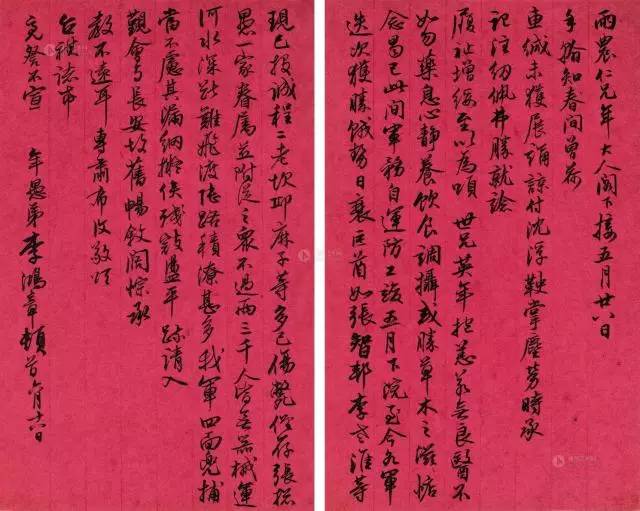 雨農仁兄年大人閣下接五月廿八日
手牋知春間曾荷
惠緘未獲展誦諒付沈浮鞅掌塵勞時承
記注紉佩弗勝就諗
履祉增綏至以為頌 世兄英年抱恙若無良醫不
如勿藥息心靜養飲食調攝或勝草木之滋惦
念曷已此間軍務自運防工竣五月下浣至今各軍
迭次獲勝賊勢日衰巨酋如張智邦李老淮等
現已投誠程二老坎邱麻子等多已傷斃僅存張總
愚一家眷屬並附從之眾不過兩三千人皆無器械運
河水深此難飛渡陸路積潦甚多我軍四面兜捕
當不慮其漏網擬俟殘寇盪平 疏請入
覲會與長安故舊暢敘闊悰承
教不遠耳 專肅布復敬頌
台祺諸希
亮詧不宣
年愚弟李鴻章頓首 六月十六日